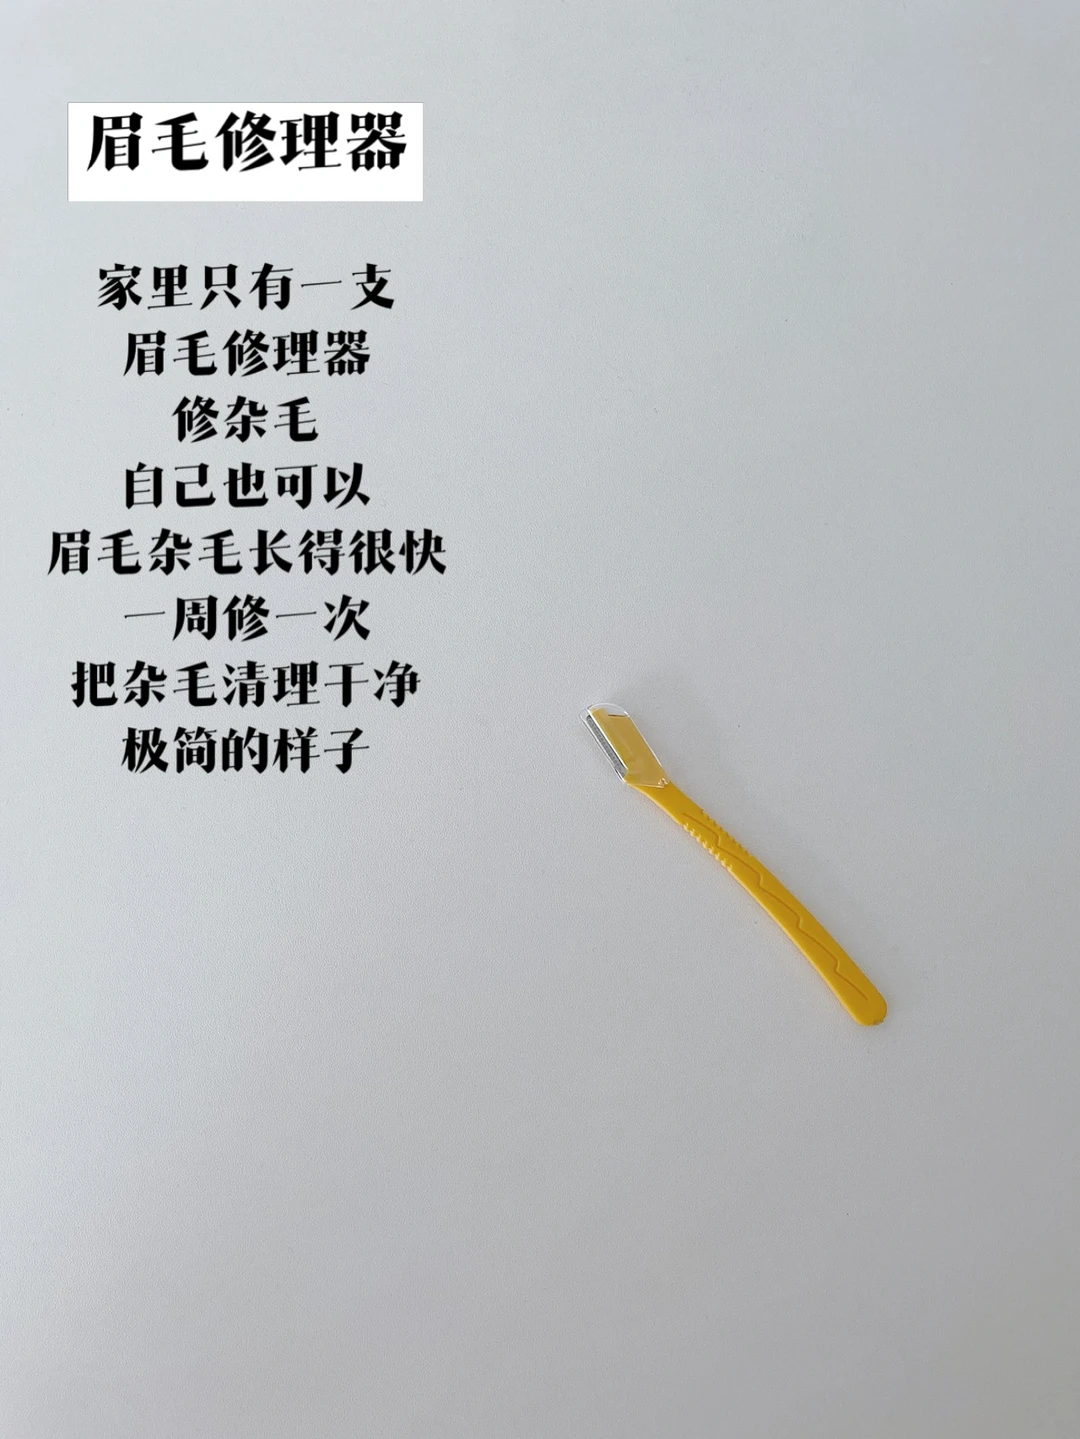 眉毛修理器
家里只有一支
眉毛修理器
修杂毛
自己也可以
眉毛杂毛长得很快
一周修一次
把杂毛清理干净
极简的样子